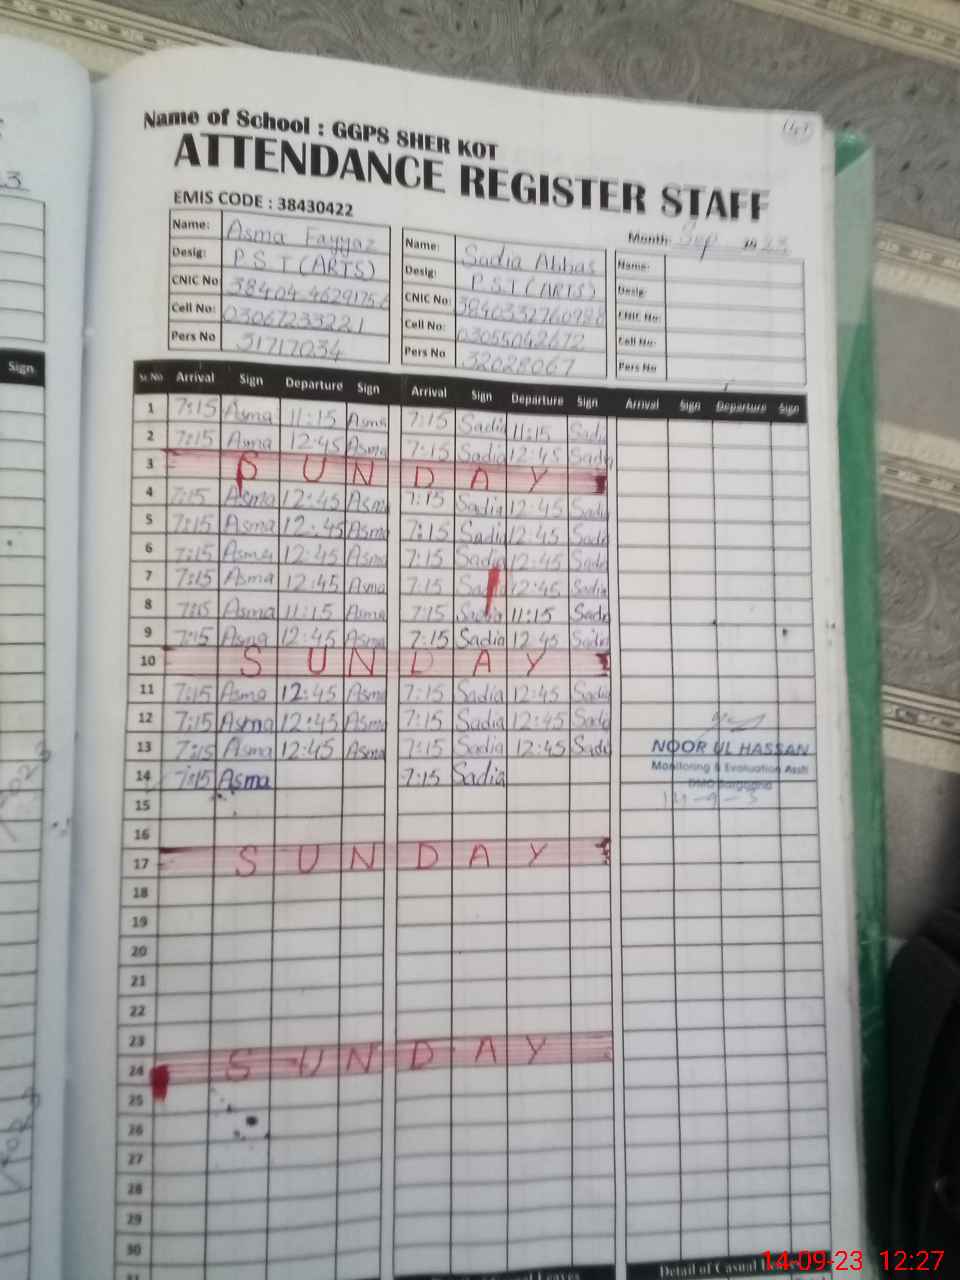 Name of School : GGPS SHER KOT
ATTENDANCE REGISTER STAFF
EMIS CODE : 38430422
Month: Sep 23
Name: Asma Fayyaz Name: Sadia Abbas Name:
Desig: P.S.T (ARTS) Desig: P.S.T (ARTS) Desig:
CNIC No: CNIC No: CNIC No:
Cell No: 03067233221 Cell No: 03055042672 Cell No:
Pers No 31717034 Pers No 32028067 Pers No
Sr.No Arrival Sign Departure Sign Arrival Sign Departure Sign Arrival Sign Departure Sign
1 7:15 Asma 11:15 Asma 7:15 Sadia 11:15 Sadia
2 7:15 Asma 12:45 Asma 7:15 Sadia 12:45 Sadia
3 S U N D A Y
4 7:15 Asma 12:45 Asma 7:15 Sadia 12:45 Sadia
5 7:15 Asma 12:45 Asma 7:15 Sadia 12:45 Sadia
6 7:15 Asma 12:45 Asma 7:15 Sadia 12:45 Sadia
7 7:15 Asma 12:45 Asma 7:15 Sadia 12:45 Sadia
8 7:15 Asma 11:15 Asma 7:15 Sadia 11:15 Sadia
9 7:15 Asma 12:45 Asma 7:15 Sadia 12:45 Sadia
10 S U N D A Y
11 7:15 Asma 12:45 Asma 7:15 Sadia 12:45 Sadia
12 7:15 Asma 12:45 Asma 7:15 Sadia 12:45 Sadia
13 7:15 Asma 12:45 Asma 7:15 Sadia 12:45 Sadia
NOOR UL HASSAN
Monitoring & Evaluation Asstt
DMO Sargodha
14 7:15 Asma 7:15 Sadia
15
16
17 S U N D A Y
18
19
20
21
22
23
24 S U N D A Y
25
26
27
28
29
30
Detail of Casual
Sign
14-09-23 12:27